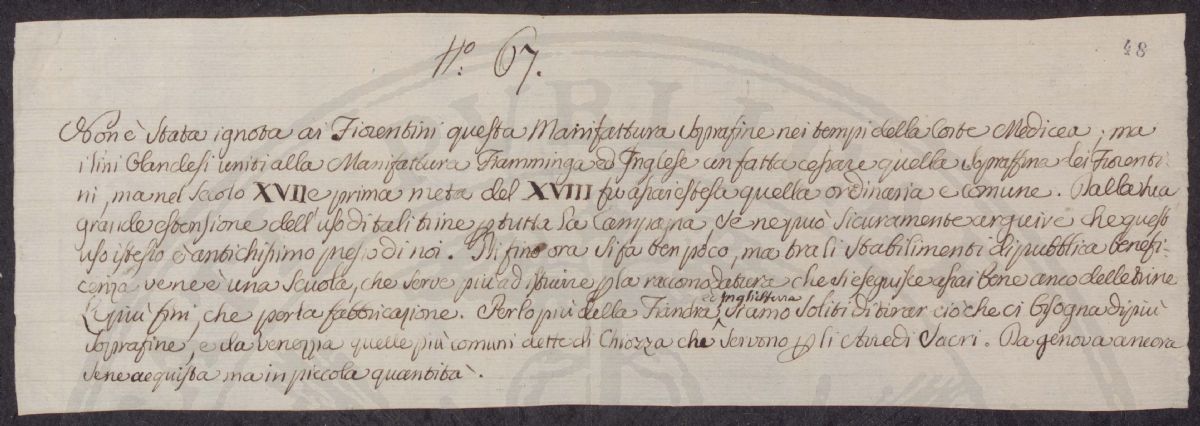 48
N.º 67.
Non è stata ignota ai Fiorentini questa Manifattura Soprafine nei tempi della Corte Medicea; ma
i lini Olandesi uniti alla Manifattura Framminga ed Inglese an fatta cessare quella Sopraffina dei Fiorenti-
ni, ma nel Secolo XVII e prima meta del XVIII fu assai estesa quella ordinaria e comune. Dalla sua
grande estensione dell'uso di tali trine p tutta la Campagna, se ne può sicuramente arguire che quest'
uso istesso è antichissimo presso di noi. Di fino ora si fa ben poco, ma tra li stabilimenti di pubblica benefi-
cenza vene è una Scuola, che serve più ad istruire p la racomodatura che si eseguisce assai bene anco delle trine
le più fini, che per la fabbricazione. Per lo più dalla Fiandra, e Inghilterra siamo soliti di tirar ciò che ci bisogna di più
soprafine, e da venezzia quelle più comuni dette di Chiozza che servono p li Arredi Sacri. Da genova ancora
se ne acquista ma in piccola quantità.